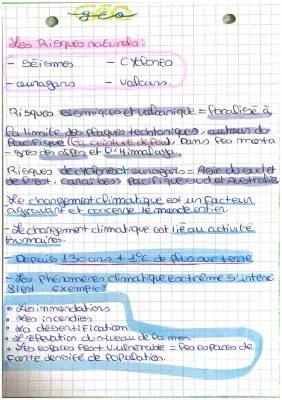 géo
Les Risques naturels :
- séismes - cyclones
- ouragans - volcans
Risques sismiques et volcanique = localisé à
la limite des plaques techtoniques, autour du
Pacifique (la ceinture de feu), Dans les monta
- gnes des alpes et l'Himalaya.
Risques de cyclones et ouragans = Asie du sud et
de l'est, caraïbes pacifique sud et Australie
Le changement climatique est un facteur
agravant et concerne le monde entier.
- Le changement climatique est lié au activité
humaines.
- Depuis 130 ans + 1°C de plus sur terre
- Les phénomènes climatique extrême s'intensi
fient exemple :
• Les innondations
• Les incendies
• La désertification
• L'élévation du niveau de la mer
• Les espaces les + vulnérable = les espaces de
forte densité de population.